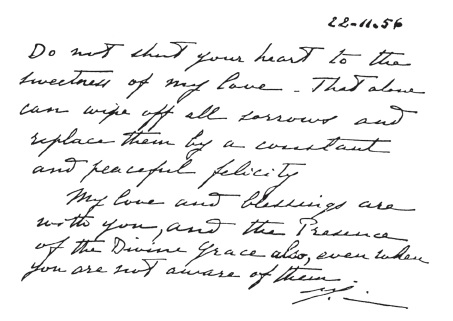 22-11-56
Do not shut your heart to the
sweetness of my love. That alone
can wipe off all sorrows and
replace them by a constant
and peaceful felicity
My love and blessings are
with you, and the Presence
of the Divine Grace also, even when
you are not aware of them.